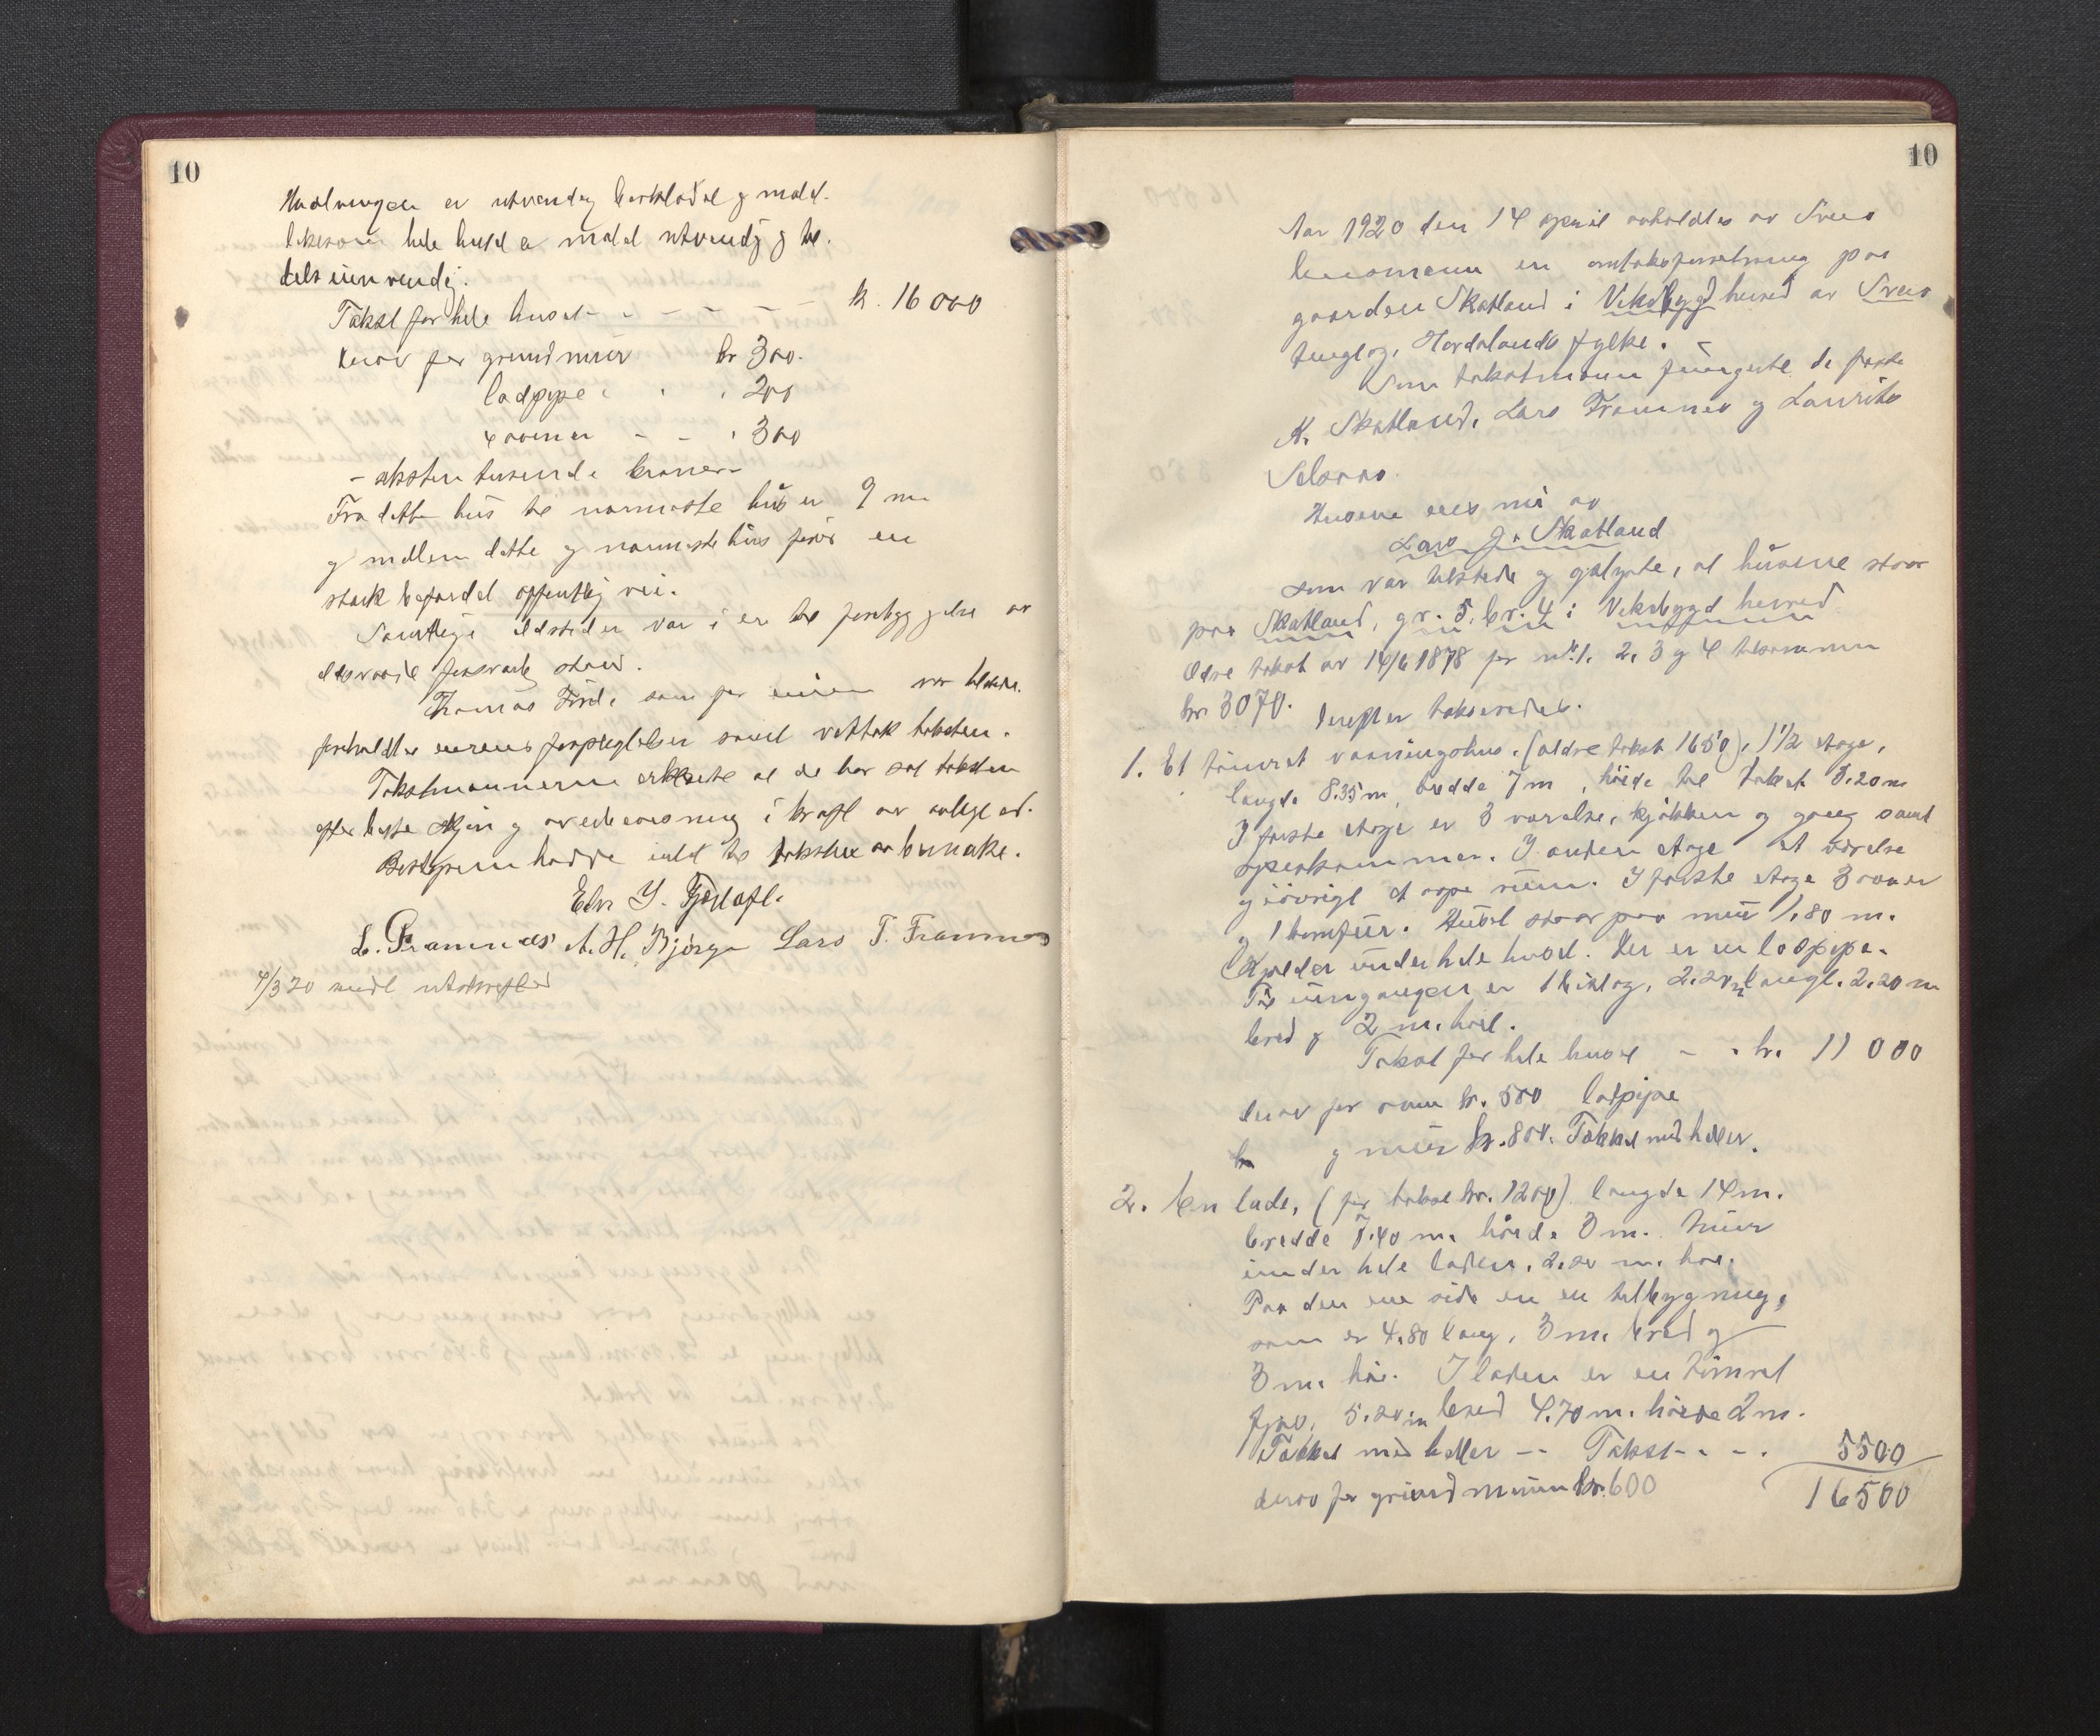 10
Hvælvingen er utvendig bordkledd og malt.
likesom hele huset er malt utvendig og til
dels innvendig.
Takst for hele huset - - - - - k. 16 000
herav for grundmur kr 300.
ladpipe " " " 200
ovener - - " 300
- seksten tusende kroner -
Fra dette hus til nærmeste hus er 9 m
og mellem dette og nærmeste hus förer en
sterk befærdet offentlig vei.
Samtlige ildsteder var i en til forebyggelse av
ildsvaade forsvarlig stand.
Thomas Förde som for eieren var tilstede.
foreholdtes eierens forpligtelser samt vedtok taksten.
Takstmænnerne erklærte at de har sat taksten
efter beste skjön og overbevisning i kraft av avlagt ed.
Bestyreren hadde intet til taksten at bemerke.
L. Framnes A. H. Bjørge Lars T. Framnes
4/3 20 meldt utskreftet
10
Aar 1920 den 14 april avholdtes av Sveio
lensmann en omtaksforretning paa
gaarden Skatland i Vikebygd herred av Sveio
tinglag, Hordalands fylke.
Som takstmænn fungerte de faste
K. Skatland, Lars Framnes og Laurits
Selsaas.
Husene eies nú av
Lars J. Skatland
som var tilstede og oplyste, at húsene staar
paa Skatland, gr. 5, br. 4 i Vikebygd herred
Ældre takst av 14/6 1878 for nr. 1, 2, 3 og 4 tilsammen
kr 3070. Derefter takseredes.
1. Et tömret vaaningshus. (ældre takst 1650), 1 1/2 etage,
længde 8.35 m, bredde 7 m, höide til taket 3.20 m
I förste etage er 3 værelser, kjökken og gang samt
spiskammer. I anden etage et værelse
og iövrigt et aapent rum. I förste etage 3 ovner
og 1 komfúr. Húset staar paa mur 1.80 m.
Kjelder únder hele huset. Der er en ladpipe.
Til inngangen er 1 bislag, 2.20 m langt. 2.20 m
bred og 2 m. höit.
Takst for hele huset - " kr. 11 000
herav for ovne kr. 500 ladpipe
og múr kr. 800. Tækket med heller.
2. En lade, (för takst kr. 1200) længde 14 m.
bredde 7.40 m. höide 3 m. Múr
únder hele laden, 2.20 m. höi.
Paa den ene side er en tilbygning,
som er 4.80 lang, 3 m. bred og
3 m. höi. I laden er en tömret
fjös, 5.20 m bred 4.70 m. höide 2 m.
Tækket med heller - - Takst - - - 5500
derav for grúndmúren kr. 600 16500